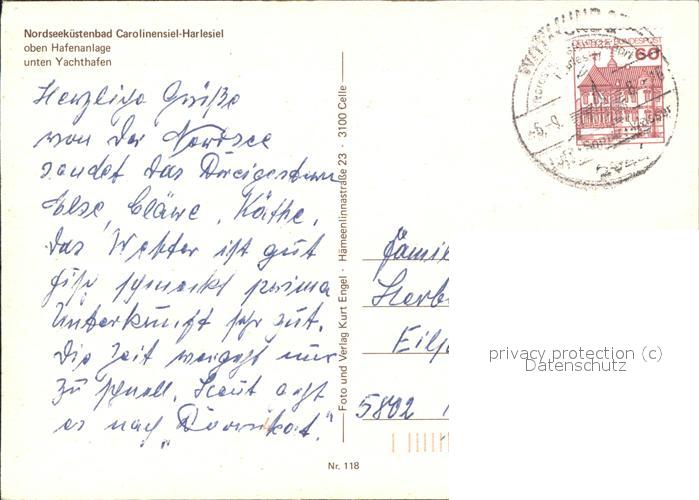 Nordseeküstenbad Carolinensiel-Harlesiel
oben Hafenanlage
unten Yachthafen
Herzliche Grüße
von der Nordsee
sendet das Dreigestirn
Else, Cläre, Käthe.
Das Wetter ist gut
Fisch schmeckt prima
Unterkunft sehr gut.
Die Zeit vergeht nur
zu schnell. Heut geht
es nach
Foto und Verlag Kurt Engel · Hämeenlinnastraße 23 · 3100 Celle
Nr. 118
DEUTSCHE BUNDESPOST
60
Famil
Herb
Eil
5802
privacy protection (c)
Datenschutz